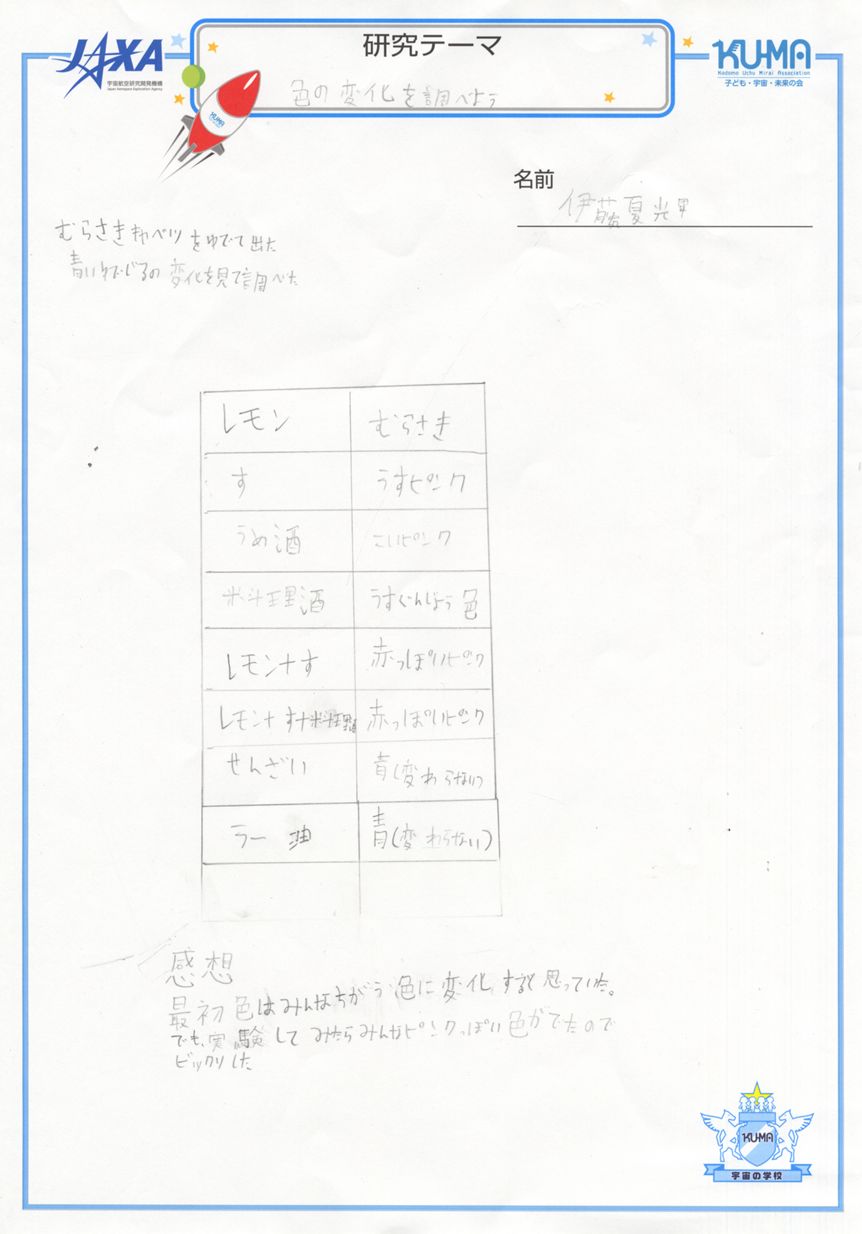 JAXA
宇宙航空研究開発機構
Japan Aerospace Exploration Agency
研究テーマ
KU-MA
Kodomo Uchu Mirai Association
子ども・宇宙・未来の会
KU-MA
色の変化を調べよう
名前
伊藤夏光
むらさきキャベツをゆでて出た
青いゆでじるの変化を見て調べた
レモン むらさき
す うすピンク
うめ酒 こいピンク
料理酒 うすぐんじょう色
レモン+す 赤っぽいピンク
レモン+す+料理酒 赤っぽいピンク
せんざい 青(変わらない)
ラー油 青(変わらない)
感想
最初色はみんなちがう色に変化すると思っていた。
でも、実験してみたらみんなピンクっぽい色がでたので
ビックリした
KU-MA
宇宙の学校